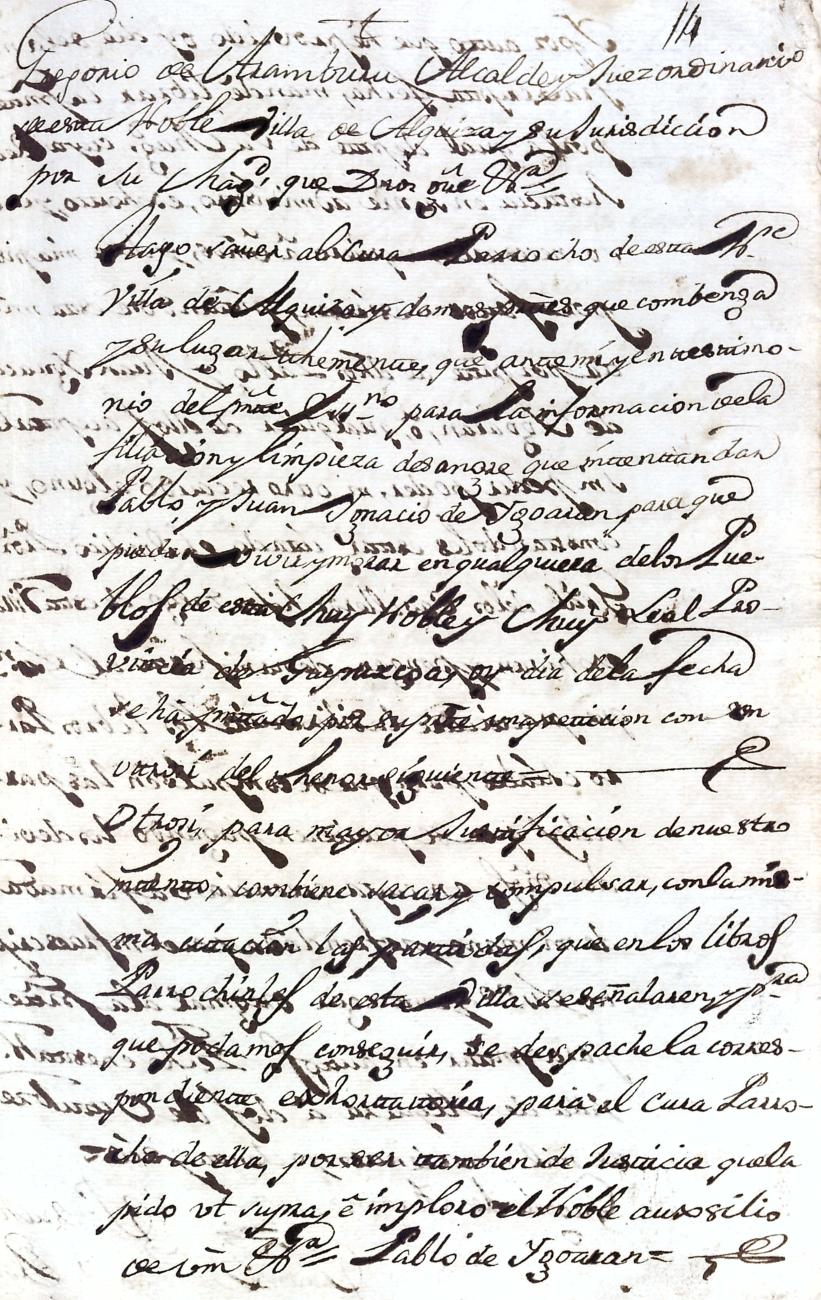 14
Gregorio de Aramburu Alcalde y Juez ordinario
de esta Noble Villa de Alquiza y su Jurisdiccion
por su Mag.d que Dios gũe &.a
Hago saver al Cura Parrocho de esta N.e
Villa de Alquiza y demas que combenga
y su lugar theniente, que ante mi y en testimo-
nio del pñte Ess.no para la informacion de la
filiacion y limpieza de sangre que intentan dar
Pablo, y Juan Ignacio de Ygoaran para que
puedan vivir y morar en qualquiera de los Pue-
blos de esta Muy Noble y Muy Leal Pro-
vincia de Guipuzcoa, oy dia de la fecha
se ha por su pte una peticion con un
otrosi del thenor siguiente
Otrosi para mayor Justificacion de nuestro
intento, combiene sacar y compulsar, con la mis-
ma citacion las partidas, que en los libros
Parrochiales de esta Villa señalaren, y p.ra
que podamos conseguir, se despache la corres-
pondiente exhortatoria, para el Cura Parro-
cho de ella, por ser tambien de Justicia que la
pido vt supra, e imploro el Noble auxsilio
de vm̃ &.a Pablo de Ygoaran=